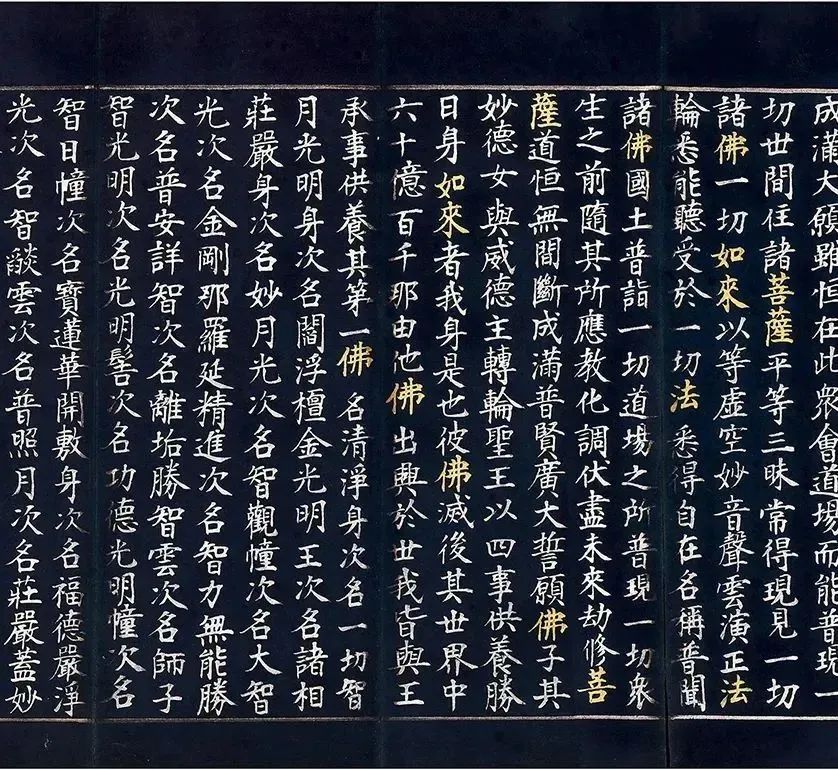 成滿大願雖恒在此衆會道場而能普現一
切世間住諸菩薩平等三昧常得現見一切
諸佛一切如來以等虛空妙音聲雲演正法
輪悉能聽受於一切法悉得自在名稱普聞
諸佛國土普詣一切道場之所普現一切衆
生之前隨其所應教化調伏盡未來劫修菩
薩道恒無間斷成滿普賢廣大誓願佛子其
妙德女與威德主轉輪聖王以四事供養勝
日身如來者我身是也彼佛滅後其世界中
六十億百千那由他佛出興於世我皆與王
承事供養其第一佛名清淨身次名一切智
月光明身次名閻浮檀金光明王次名諸相
莊嚴身次名妙月光次名智觀幢次名大智
光次名金剛那羅延精進次名智力無能勝
次名普安詳智次名離垢勝智雲次名師子
智光明次名光明髻次名功德光明幢次名
智日幢次名寶蓮華開敷身次名福德嚴淨
光次名智燄雲次名普照月次名莊嚴蓋妙